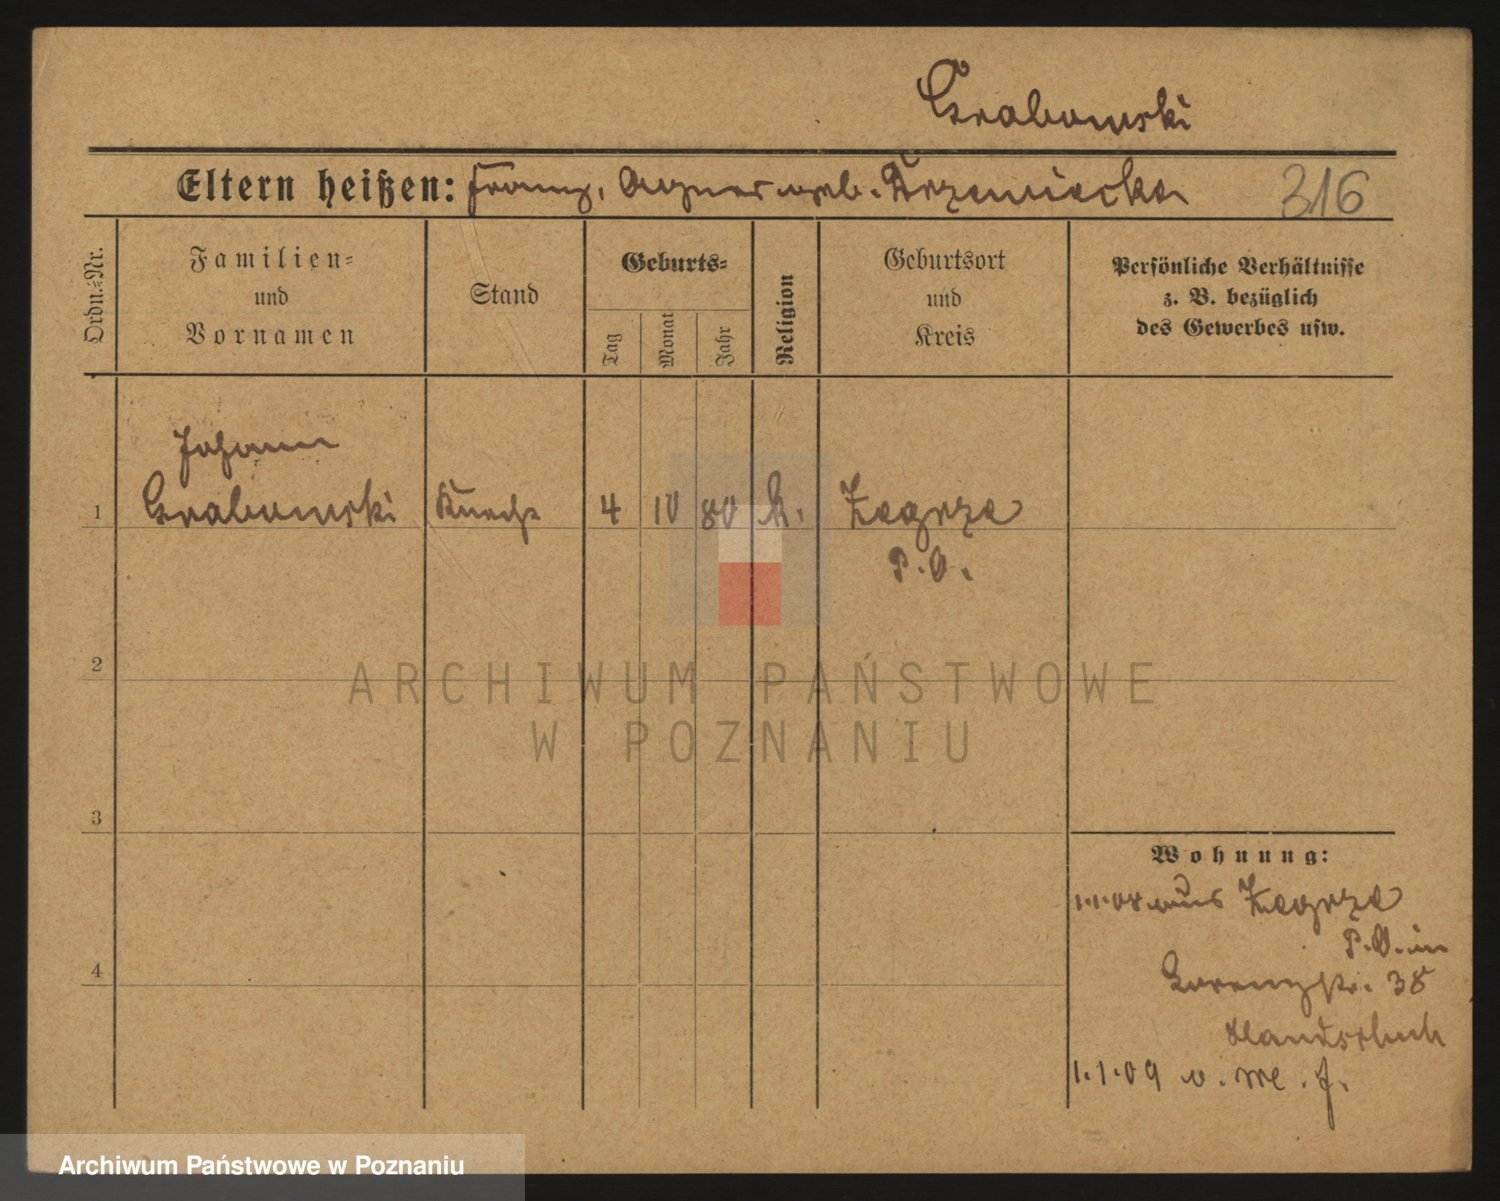 Grabowski
Eltern heißen: Franz, Agnes geb. Krzemiecka 316
Ordn.-Nr.
Familien-
und
Vornamen
Stand
Geburts-
Tag
Monat
Jahr
Religion
Geburtsort
und
Kreis
Persönliche Verhältnisse
z. B. bezüglich
des Gewerbes usw.
Johann
1 Grabowski Knecht 4 10 80 k. Zagrze
P. O.
2
3
4
Wohnung:
1.1.08 aus Zagrze
P. O. in
Lorenzstr. 38
1.1.09 v. w. f.
ARCHIWUM PAŃSTWOWE
W POZNANIU
Archiwum Państwowe w Poznaniu